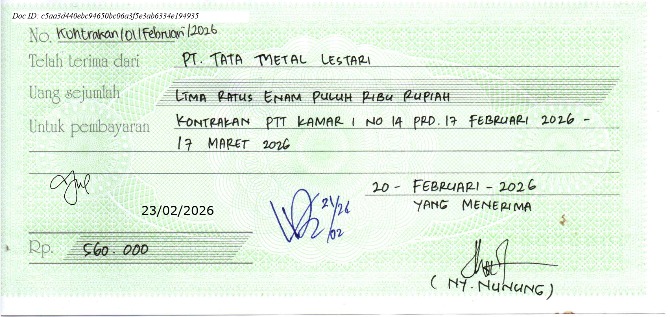 Doc ID. c5aa3d440ebc94650bc06a3f5e3ab6334e194935
No. Kontrakan/01/Februari/2026
Telah terima dari PT. TATA METAL LESTARI
Uang sejumlah LIMA RATUS ENAM PULUH RIBU RUPIAH
Untuk pembayaran KONTRAKAN PTT KAMAR 1 NO 14 PRD. 17 FEBRUARI 2026 -
17 MARET 2026
20 - FEBRUARI - 2026
YANG MENERIMA
23/02/2026
21/26
02
Rp. 560.000
( NY. NUNUNG )